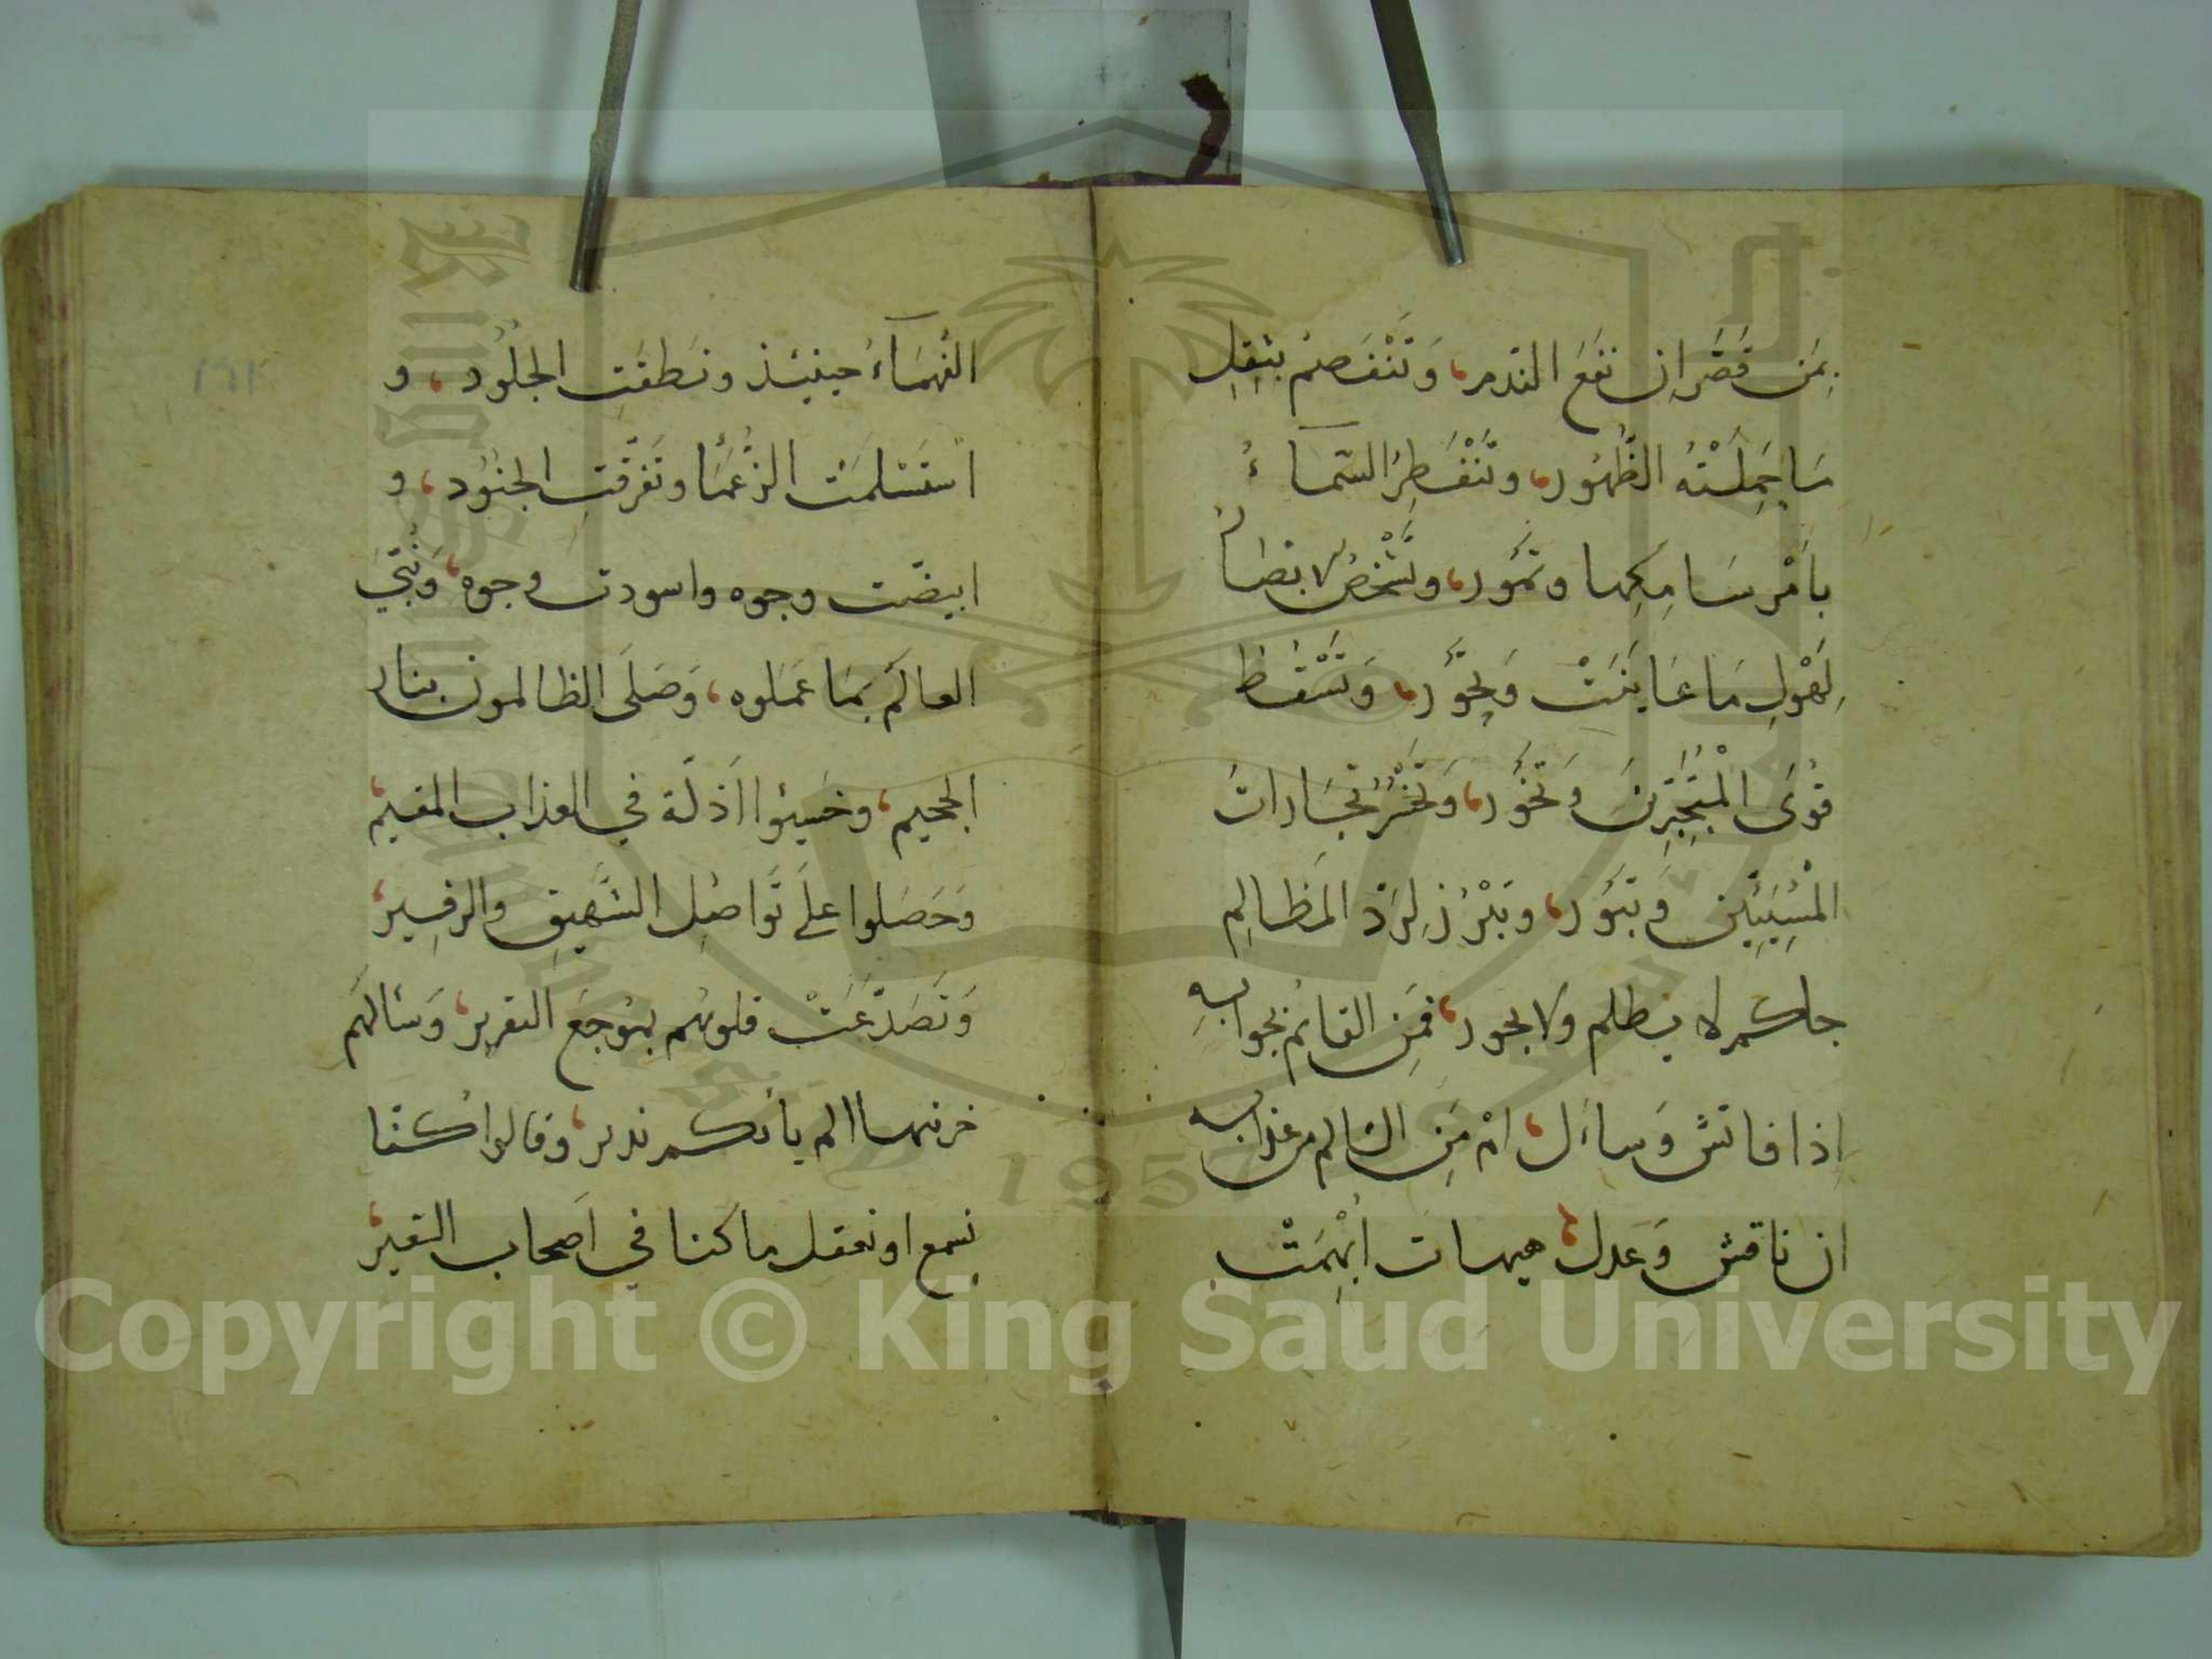 بِمَن قَصَّرَ اِن نفَعَ الندم، وَتَنْفَصِمُ بِثِقلِ
مَا حَمِلَتْهُ الظُّهُور، وتَنْفَطِرُ السَّماءُ
بأمْرِ سَامِكِها وتمُور، وتَشْخَصُ الابصارُ
لِهَوْلِ مَا عَايَنَتْ وَتحَوَّر، وَتَسْقُط
قُوَى الْمُتَجَبِّرِينَ وَتَخُور، وَتَخْسَرُ تجَارات
المُسِيئِين وتبَوُر، وتبْرُز لِرَدِّ المَظَالِم
حاكم لا يظلم وَلا يجور، فمَنِ القائم بجوابِهِ
اذا فاتش وَساءَل، امْ مَنِ السَّالم من عذابه
ان ناقش وَعدل، هيهات ابْهِمَتْ
الفُهَمَاءُ حينئذ ونَطقَتِ الجُلُود، و
استَسْلمَت الزُّعَمَا وتفَرقَتِ الجنُود، و
ابيضّت وجوه واسودت وجوه، وَنُبّيَ
العالَمُ بمَا عَملوه، وَصَلَى الظالمون بنار
الجحيم، وخَسِئوا أذلَّة في العذاب المقيم،
وَحَصَلوا علَى تَوَاصُلِ الشَّهيقِ والزفير،
وَتَصَدَّعَتْ قلوبهُم بموُجعَ التقرير، وَسَالَهُم
خزنتها الم يأتكم نذير، وقالوا لو كنا
نسمع او نعقل ما كنا في اصحاب السعير،
١٦٢
Copyright © King Saud University
King Saud University
1957